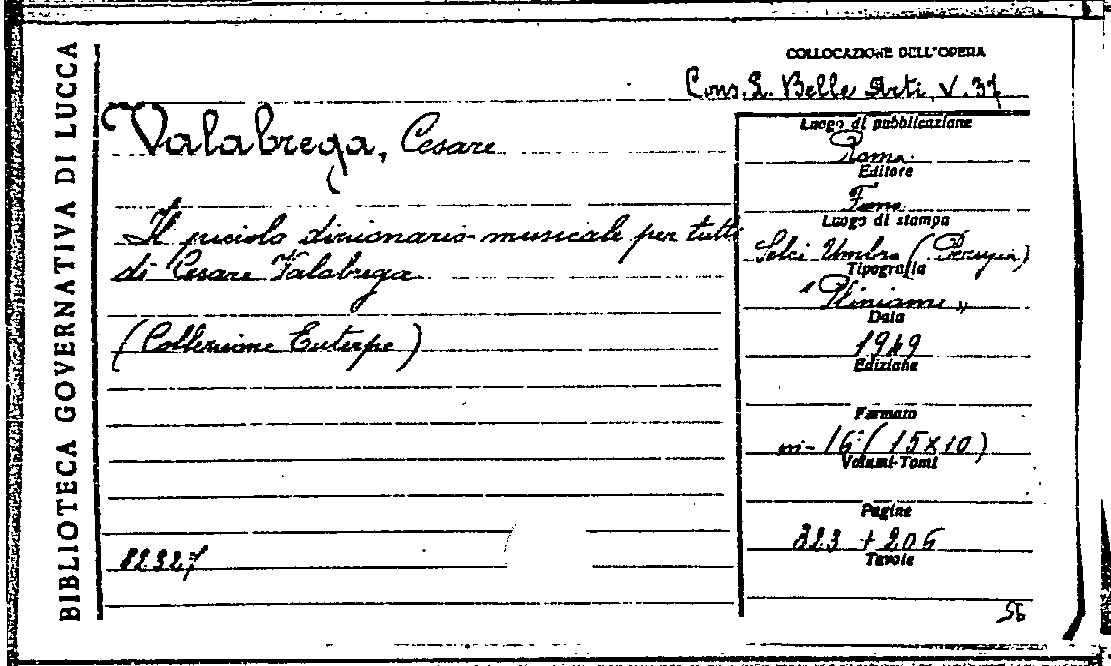 BIBLIOTECA GOVERNATIVA DI LUCCA
COLLOCAZIONE DELL'OPERA
Cons. L. Belle Arti, V. 37
Valabrega, Cesare
Il piccolo dizionario musicale per tutti
di Cesare Valabrega
(Collezione Euterpe)
82327
Luogo di pubblicazione
Roma
Editore
Luogo di stampa
Selci Umbro (Perugia)
Tipografia
"Pliniana"
Data
1949
Edizione
Formato
in-16° (15x10)
Volumi-Tomi
Pagine
323 + 206
Tavole